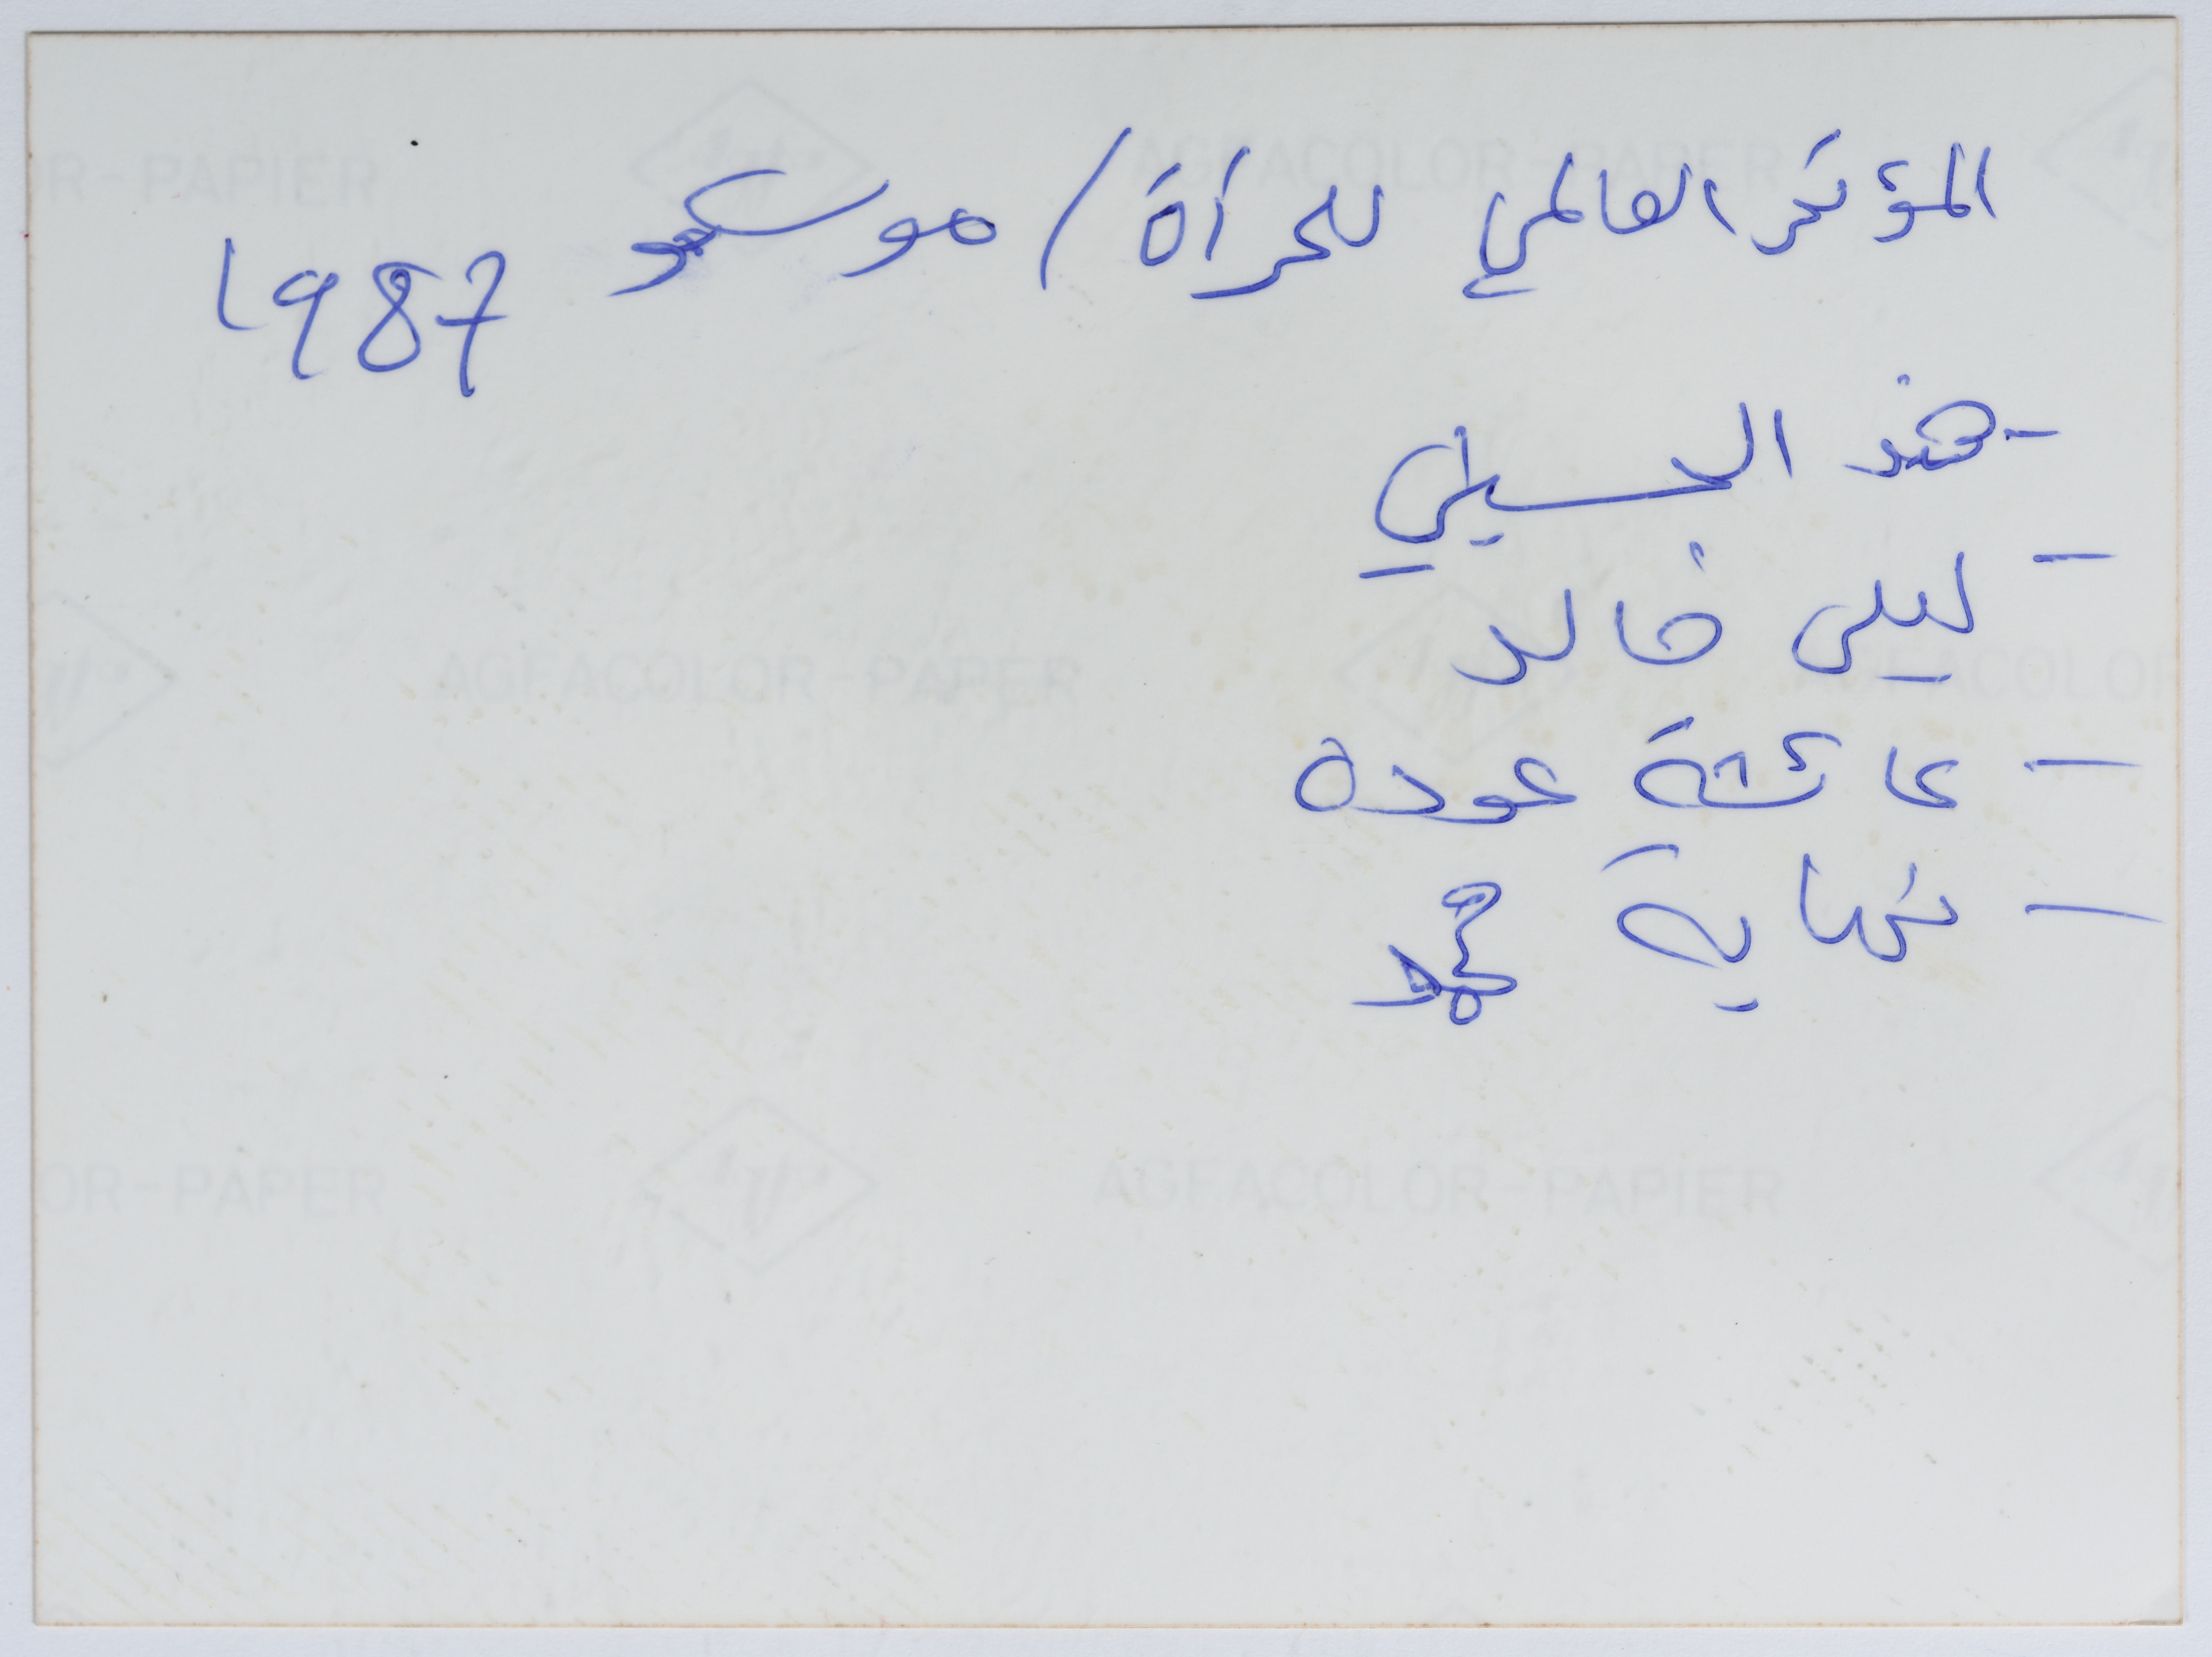 المؤتمر العالمي للمرأة / موسكو 1987
- هند الحسيني
- ليلى خالد
- عائشة عودة
- نهاية محمد
R-PAPIER AGFACOLOR-PAPER
AGFACOLOR-PAPER AGFACOLOR
OR-PAPER AGFACOLOR-PAPIER